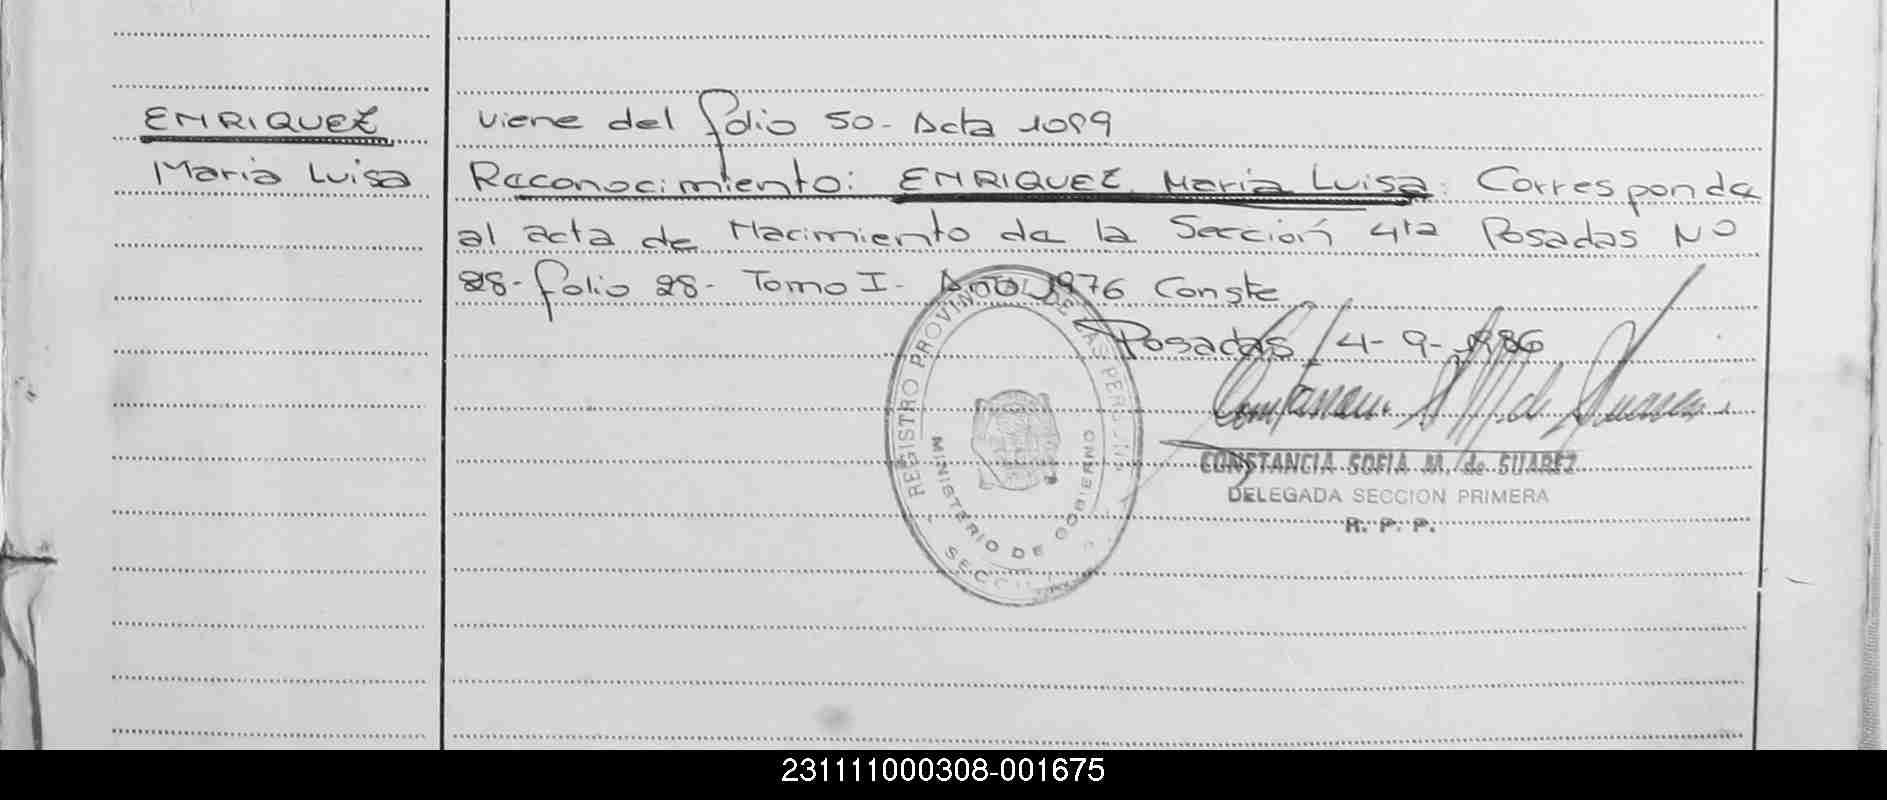 ENRIQUEZ
Maria Luisa
viene del folio 50- Acta 1099
Reconocimiento: ENRIQUEZ Maria Luisa: Corresponde
al acta de Nacimiento de la Sección 4ta Posadas Nº
28- folio 28- Tomo I- Año 1976 Conste
Posadas 14-9-1986
REGISTRO PROVINCIAL DE LAS PERSONAS
MINISTERIO DE GOBIERNO
CONSTANCIA SOFIA M. de SUAREZ
DELEGADA SECCION PRIMERA
R. P. P.
231111000308-001675